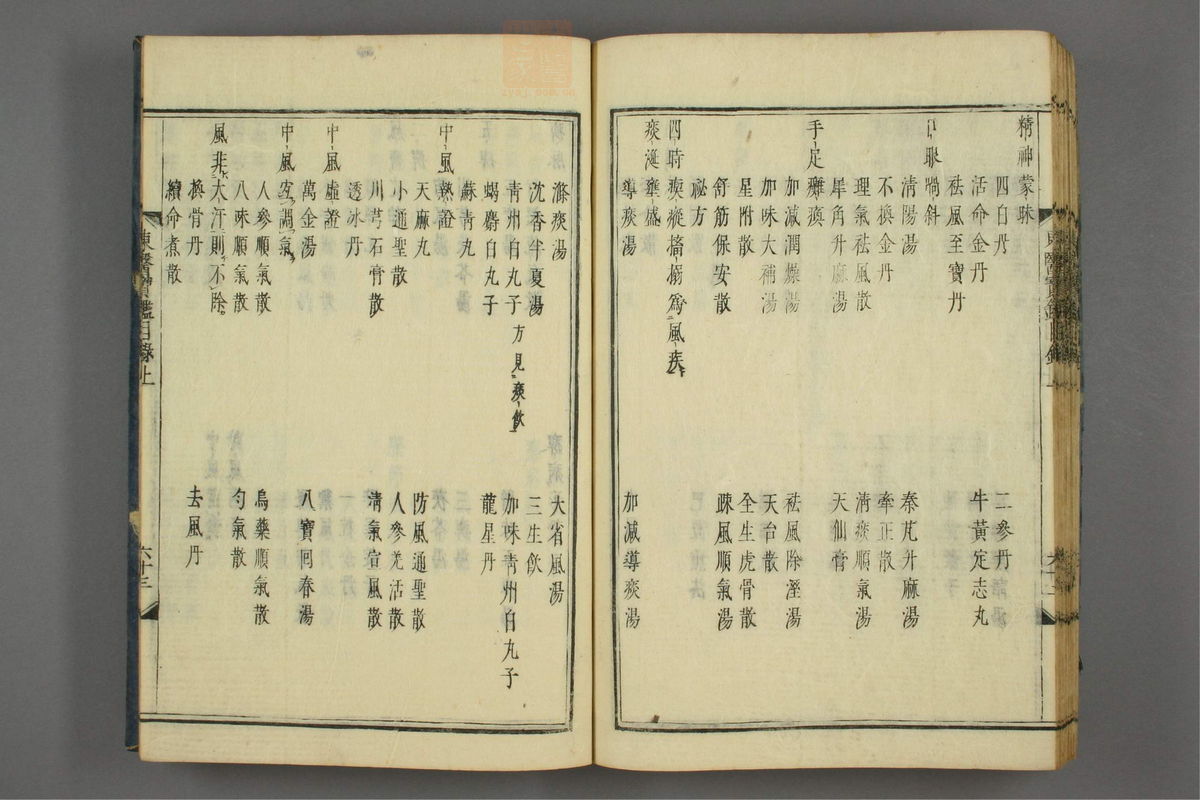 精神蒙昧
四白丹　二參丹
活命金丹　牛黃定志丸
祛風至寶丹
口眼喎斜
清陽湯　秦芃升麻湯
不換金丹　牽正散
理氣祛風散　清痰順氣湯
犀角升麻湯　天仙膏
手足癱瘓
加減潤燥湯　祛風除溼湯
加味大補湯　天台散
星附散　全生虎骨散
舒筋保安散　疎風順氣湯
祕方
四時瘈瘲搐搦爲風疾
痰涎壅盛
導痰湯　加減導痰湯
滌痰湯　大省風湯
沈香半夏湯　三生飲
青州白丸子方見痰飲　加味青州白丸子
蝎麝白丸子　龍星丹
蘇青丸
中風熱證
天麻丸　防風通聖散
小通聖散　人參羌活散
川芎石膏散　淸氣宣風散
透冰丹
中風虛證
萬金湯　八寶回春湯
中風宜調氣
人參順氣散　烏藥順氣散
八味順氣散　勻氣散
風非大汗則不除
換骨丹　去風丹
續命煮散
東醫寶鑑目錄上　六十三